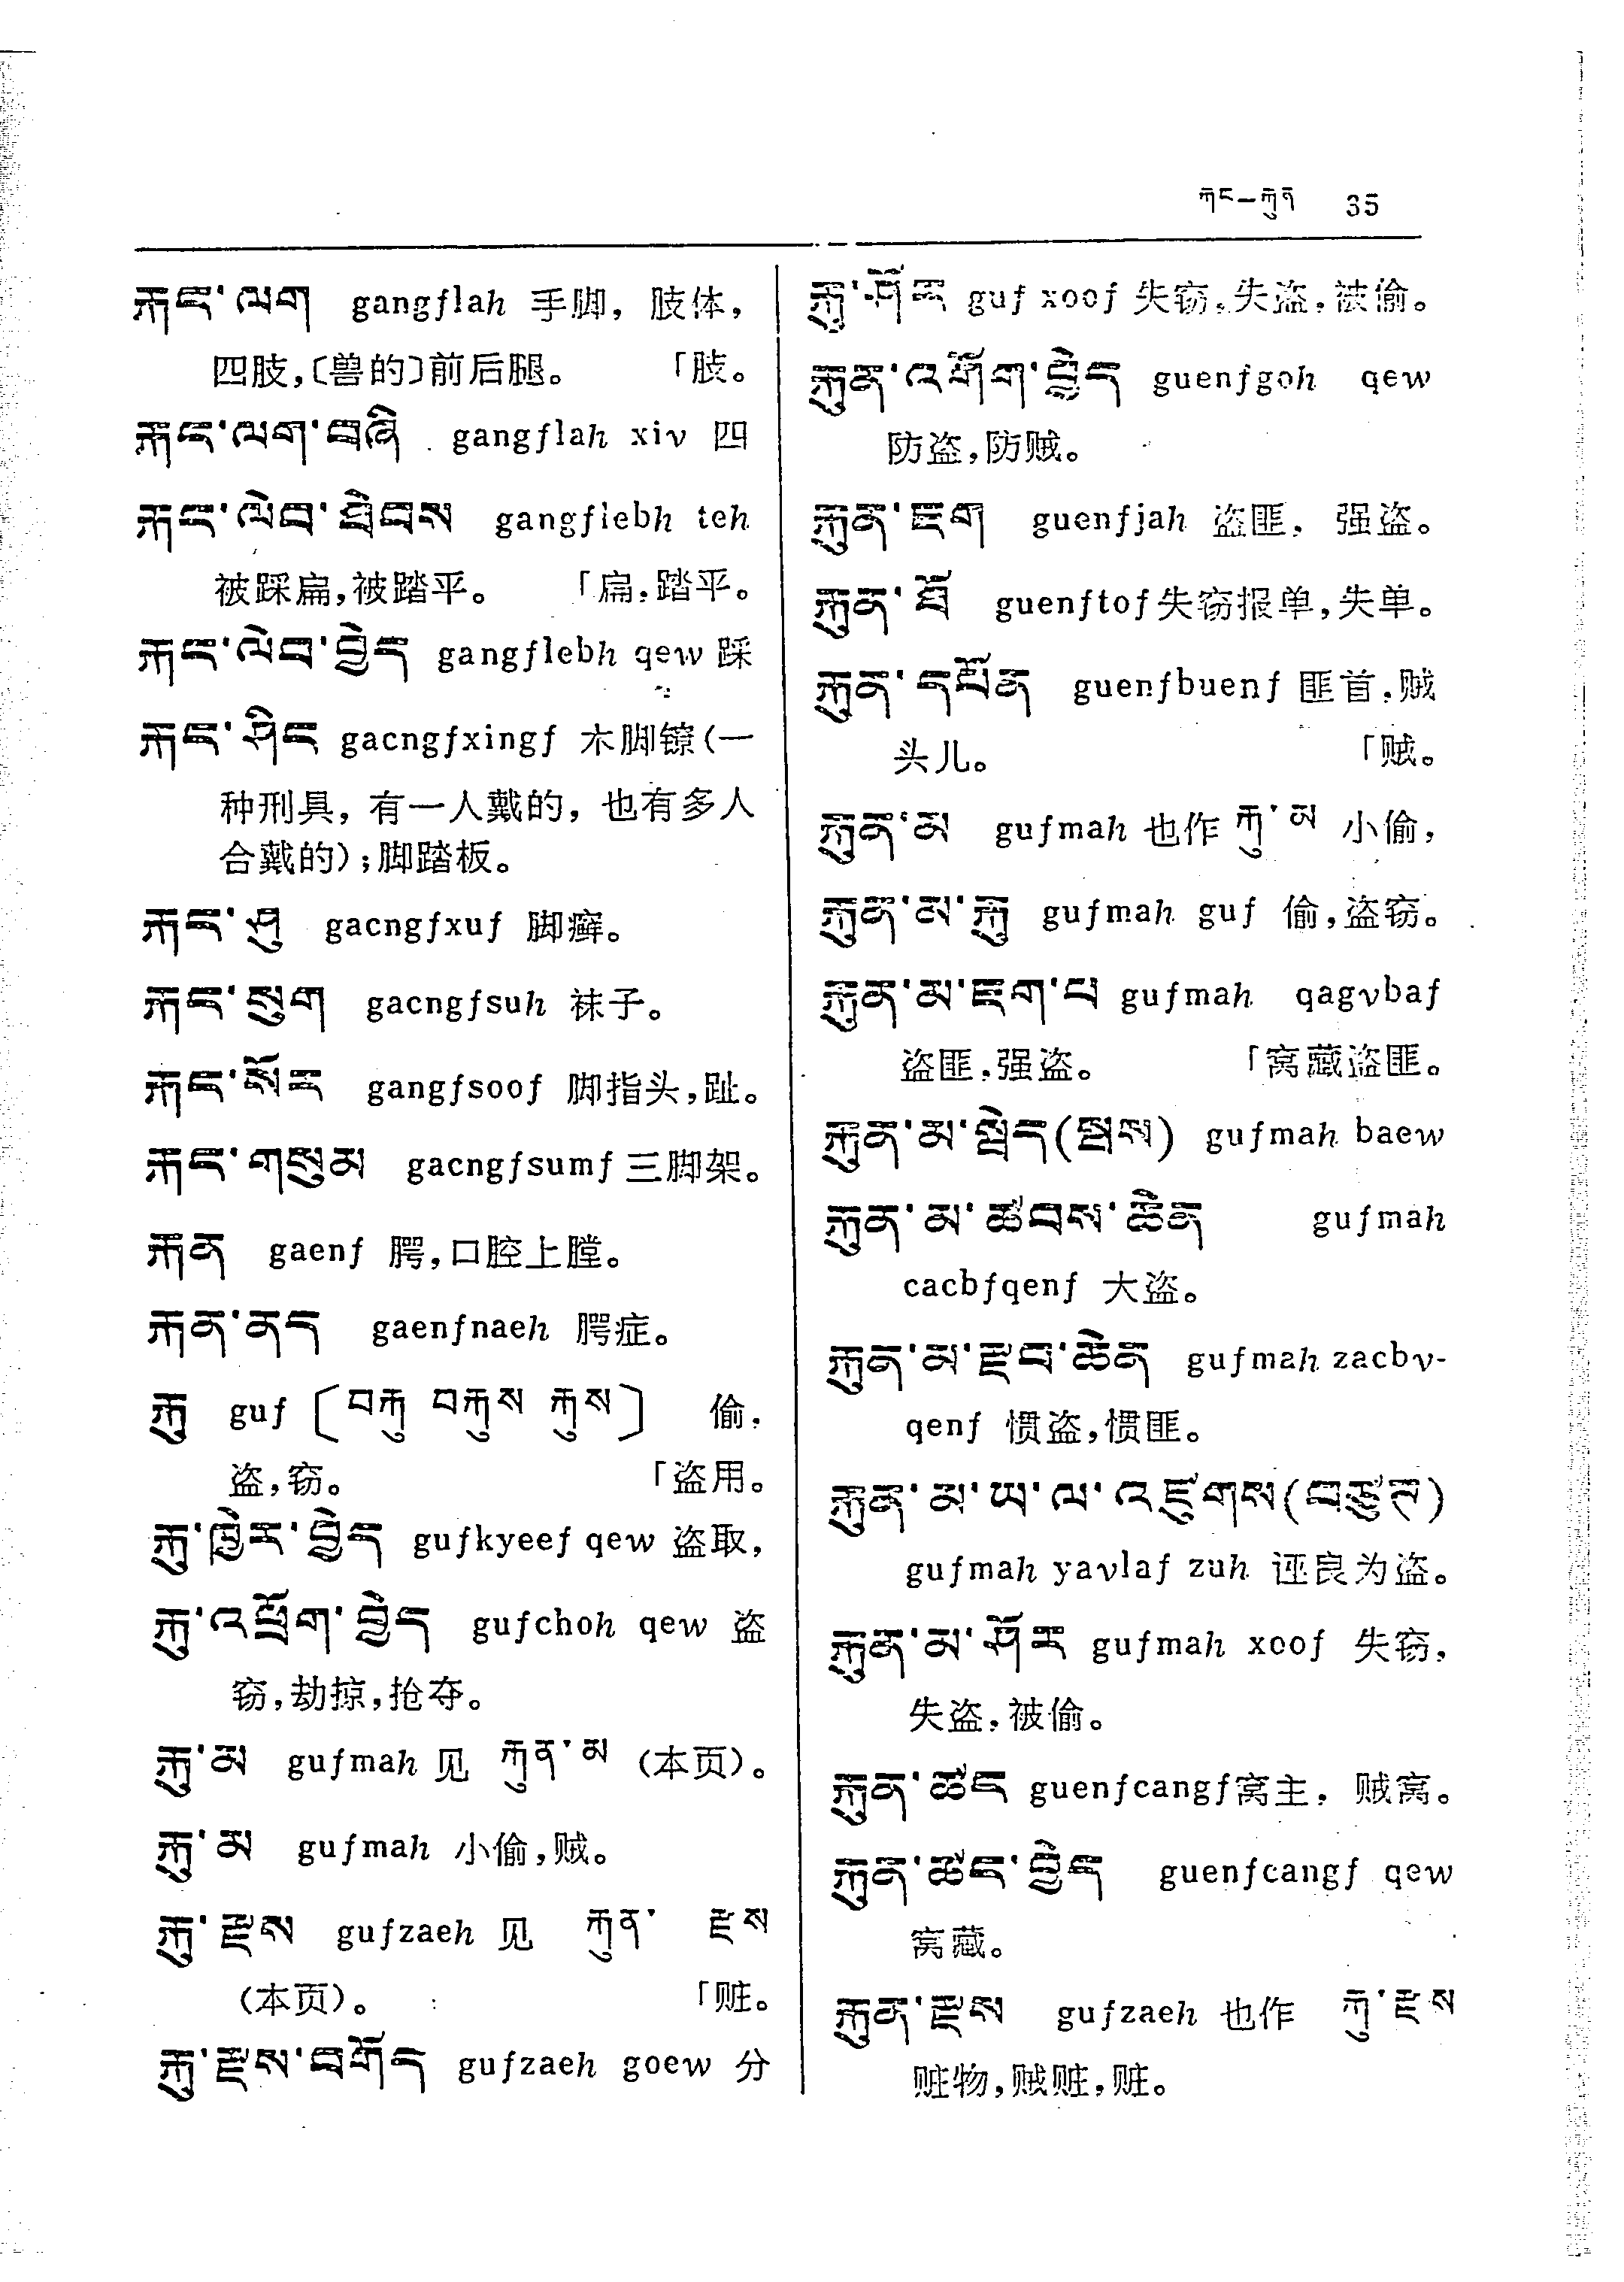 རྐང—རྐུན 35
རྐང་ལག gangflah 手脚，肢体，
四肢，〔兽的〕前后腿。 「肢。
རྐང་ལག་བཞི gangflah xiv 四
རྐང་ལེབ་ཐེབས gangflebh teh
被踩扁，被踏平。 「扁，踏平。
རྐང་ལེབ་བྱེད gangflebh qew 踩
རྐང་ཤིང gacngfxingf 木脚镣（一
种刑具，有一人戴的，也有多人
合戴的）；脚踏板。
རྐང་ཤུ gacngfxuf 脚癣。
རྐང་སུག gacngfsuh 袜子。
རྐང་སོར gangfsoof 脚指头，趾。
རྐང་གསུམ gacngfsumf 三脚架。
རྐན gaenf 腭，口腔上膛。
རྐན་ནད gaenfnaeh 腭症。
རྐུ guf 〔བརྐུ བརྐུས རྐུས〕 偷，
盗，窃。 「盗用。
རྐུ་ཁྱེར་བྱེད gufkyeef qew 盗取，
རྐུ་འཕྲོག་བྱེད gufchoh qew 盗
窃，劫掠，抢夺。
རྐུ་མ gufmah 见 རྐུན་མ （本页）。
རྐུ་མ gufmah 小偷，贼。
རྐུ་རྫས gufzaeh 见 རྐུན་ རྫས
（本页）。 「赃。
རྐུ་རྫས་བགོད gufzaeh goew 分
རྐུ་ཤོར guf xoof 失窃，失盗，被偷。
རྐུན་འགོག་བྱེད guenfgoh qew
防盗，防贼。
རྐུན་ཇག guenfjah 盗匪，强盗。
རྐུན་ཐོ guenftof 失窃报单，失单。
རྐུན་དཔོན guenfbuenf 匪首，贼
头儿。 「贼。
རྐུན་མ gufmah 也作 རྐུ་མ 小偷，
རྐུན་མ་རྐུ gufmah guf 偷，盗窃。
རྐུན་མ་ཇག་པ gufmah qagvbaf
盗匪，强盗。 「窝藏盗匪。
རྐུན་མ་སྦེད(སྦས) gufmah baew
རྐུན་མ་ཚབས་ཆེན gufmah
cacbfqenf 大盗。
རྐུན་མ་རྫབ་ཆེན gufmah zacbv-
qenf 惯盗，惯匪。
རྐུན་མ་ཡ་ལ་འཛུགས(བཙུགས)
gufmah yavlaf zuh 诬良为盗。
རྐུན་མ་ཤོར gufmah xoof 失窃，
失盗，被偷。
རྐུན་ཚང guenfcangf窝主，贼窝。
རྐུན་ཚང་བྱེད guenfcangf qew
窝藏。
རྐུན་རྫས gufzaeh 也作 རྐུ་རྫས
赃物，贼赃，赃。